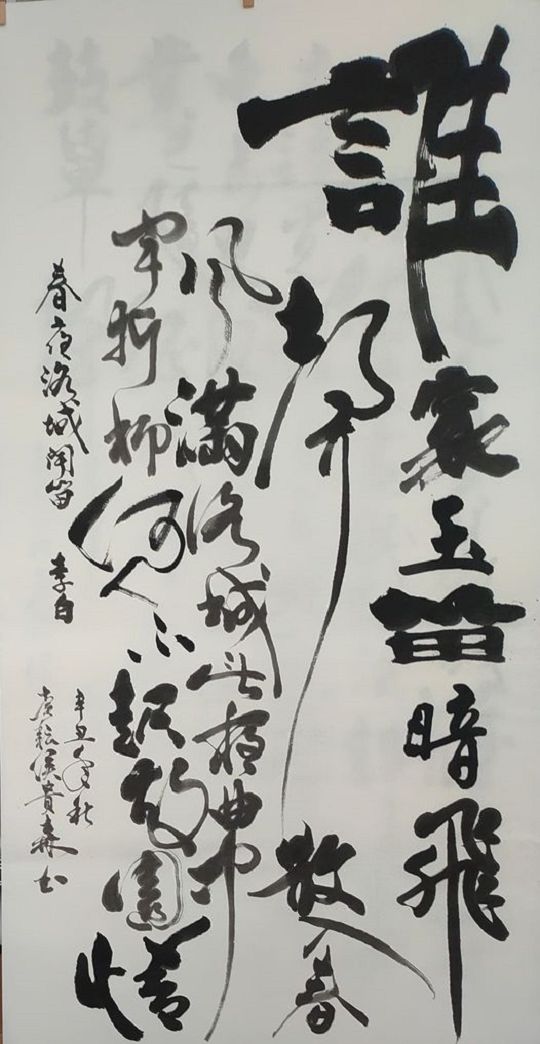 誰家玉笛暗飛
聲散入春
風滿洛城此夜曲中
聞折柳何人不起故園情
春夜洛城聞笛 李白
辛丑年秋
耘侯貴森书